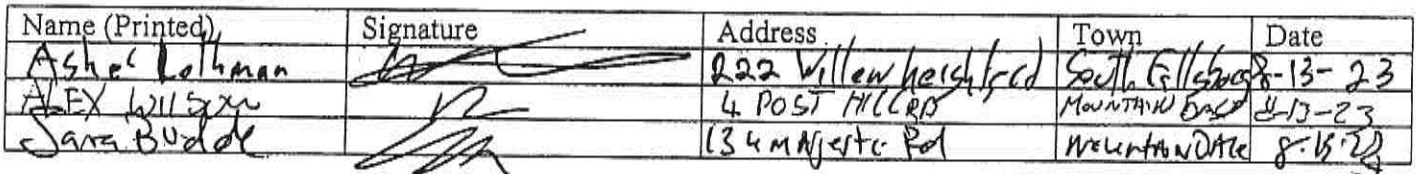 Name (Printed) Signature Address Town Date
Asher Lothman 222 Willow heights rd South Fallsburg 8-13-23
ALEX WILSON 4 POST HILL RD MOUNTAIN DALE 8-13-23
Sara Budde 134 MAjestic Rd MOUNTAINDALE